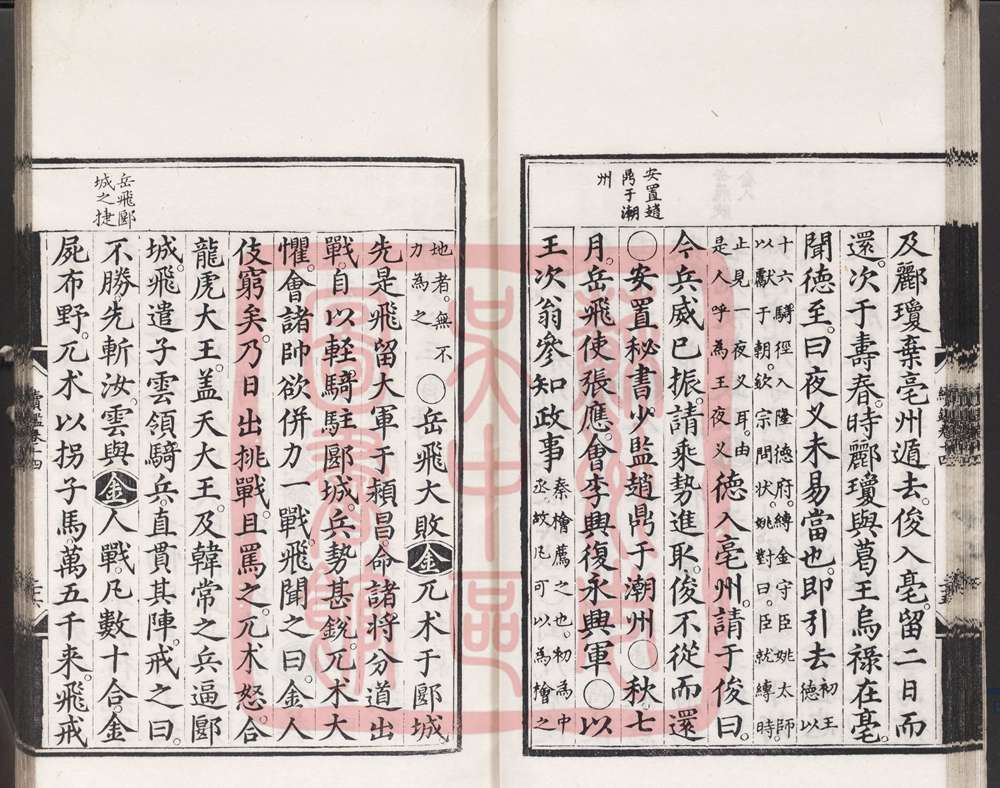 安置趙
鼎于潮
州
及酈瓊棄亳州遁去。俊入亳。留二日而
還。次于壽春。時酈瓊與葛王烏祿在亳。
聞德至。曰夜叉未易當也。即引去
初王
德以
十六騎徑入隆德府。縛金守臣姚太師。
以獻于朝。欽宗問狀。姚對曰。臣就縛時。
正見一夜叉耳。由
是人呼為王夜叉
德入亳州。請于俊曰。
今兵威已振。請乘勢進取。俊不從而還
〇安置秘書少監趙鼎于潮州〇秋。七
月。岳飛使張應。會李興復永興軍〇以
王次翁參知政事
秦檜薦之也。初為中
丞。故凡可以為檜之
岳飛郾
城之捷
地者。無不
力為之
〇岳飛大敗金兀术于郾城
先是飛留大軍于潁昌。命諸將分道出
戰。自以輕騎駐郾城。兵勢甚銳。兀术大
懼。會諸帥欲併力一戰。飛聞之曰。金人
伎窮矣。乃日出挑戰。且罵之。兀术怒。合
龍虎大王。蓋天大王。及韓常之兵逼郾
城。飛遣子雲領騎兵。直貫其陣。戒之曰。
不勝。先斬汝。雲與金人戰。凡數十合。金
屍布野。兀术以拐子馬萬五千來。飛戒
吳中區
圖書館